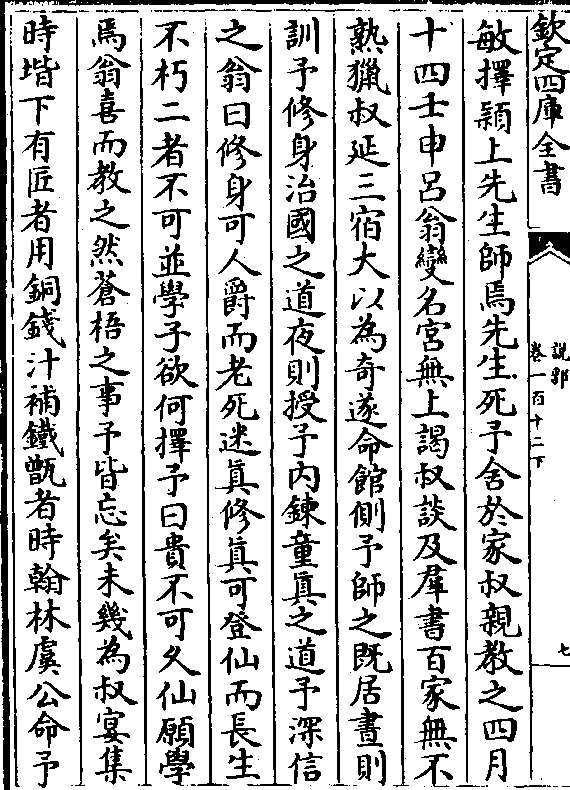 欽定四庫全書
說郛
卷一百十二下
七
敏擇潁上先生師焉先生死予舍於家叔親教之四月
十四壬申呂翁變名宮無上謁叔談及羣書百家無不
熟獵叔延三宿大以為奇遂命館側予師之既居晝則
訓予修身治國之道夜則授予内鍊童真之道予深信
之翁曰修身可人爵而老死迷真修真可登仙而長生
不朽二者不可並學子欲何擇予曰貴不可久仙願學
焉翁喜而教之然蒼梧之事予皆忘矣未幾為叔宴集
時堦下有匠者用銅錢汁補鐵甑者時翰林虞公命予